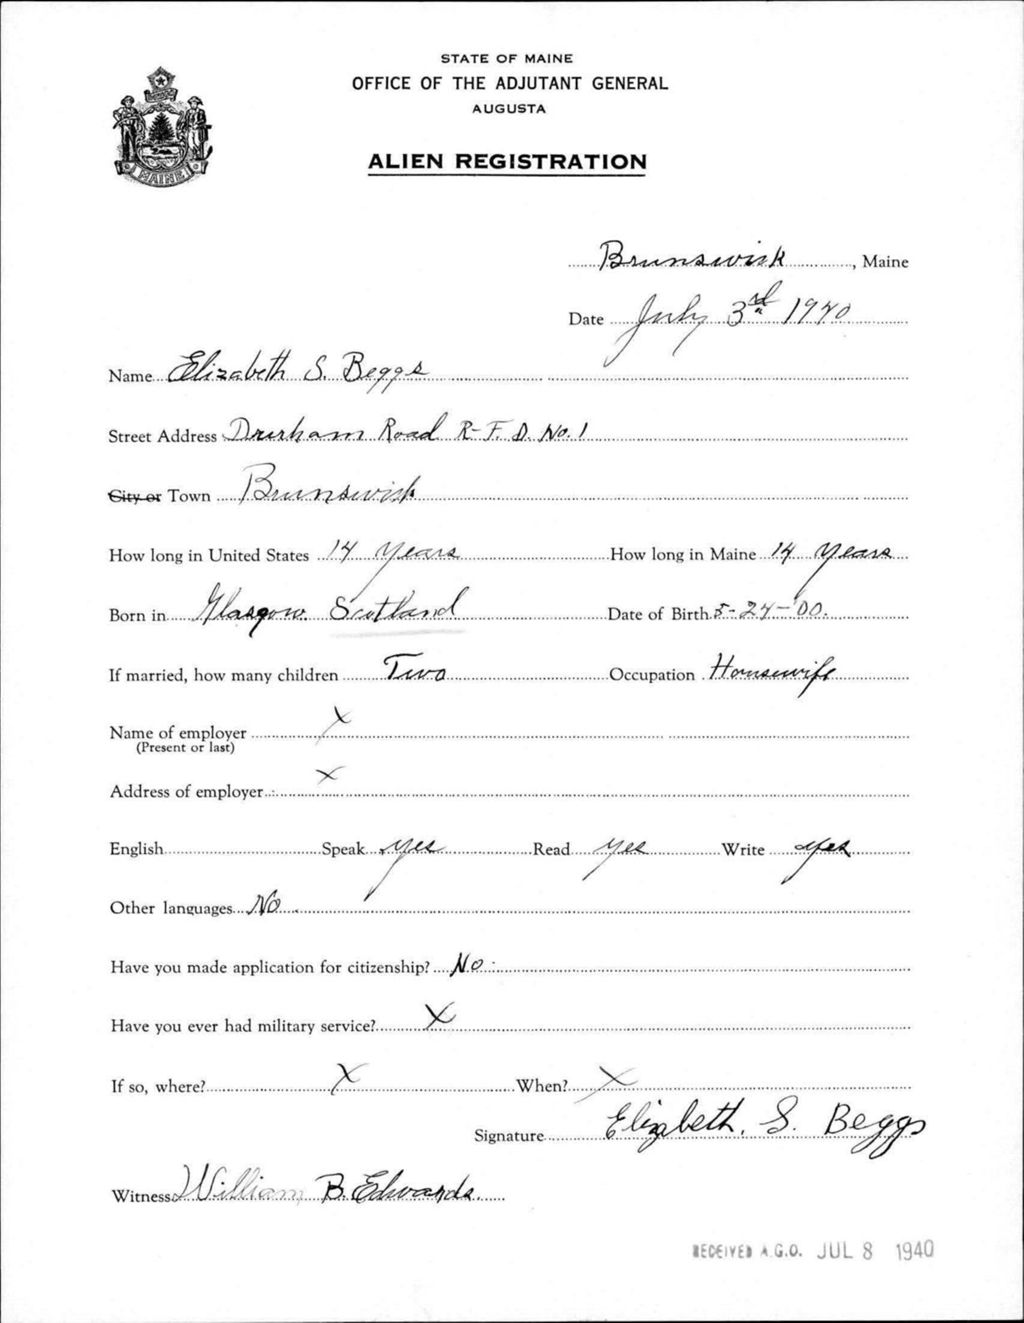 STATE OF MAINE
OFFICE OF THE ADJUTANT GENERAL
AUGUSTA
MAINE
ALIEN REGISTRATION
Brunswick, Maine
Date July 3rd 1940
Name Elizabeth S. Beggs
Street Address Durham Road R-F.D. No. 1
City or Town Brunswick
How long in United States 14 Years How long in Maine 14 Years
Born in Glasgow Scotland Date of Birth 5-24-'00.
If married, how many children Two Occupation Housewife
Name of employer X
(Present or last)
Address of employer X
English Speak yes Read yes Write yes
Other languages No
Have you made application for citizenship? No
Have you ever had military service? X
If so, where? X When? X
Signature Elizabeth. S. Beggs
Witness William B. Edwards
RECEIVED A.G.O. JUL 8 1940